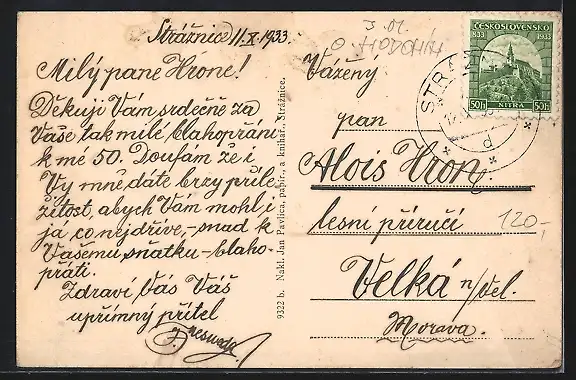 Strážnice 11.X.1933.
Milý pane Hrone!
Děkuji Vám srdečně za
Vaše tak milé blahopřání
k mé 50. Doufám že i
Vy mně dáte brzy příle-
žitost, abych Vám mohl i
já co nejdříve, - snad k
Vašemu sňatku - blaho-
přáti.
Zdraví Vás Váš
upřímný přítel
9322 b. Nakl. Jan Pavlica, papír. a knihař., Strážnice.
ČESKOSLOVENSKO
833 1933
50h NITRA 50h
STRÁŽ
d
Vážený
pan
Alois Hron
lesní příručí
120,-
Velká n/Vel.
Morava.